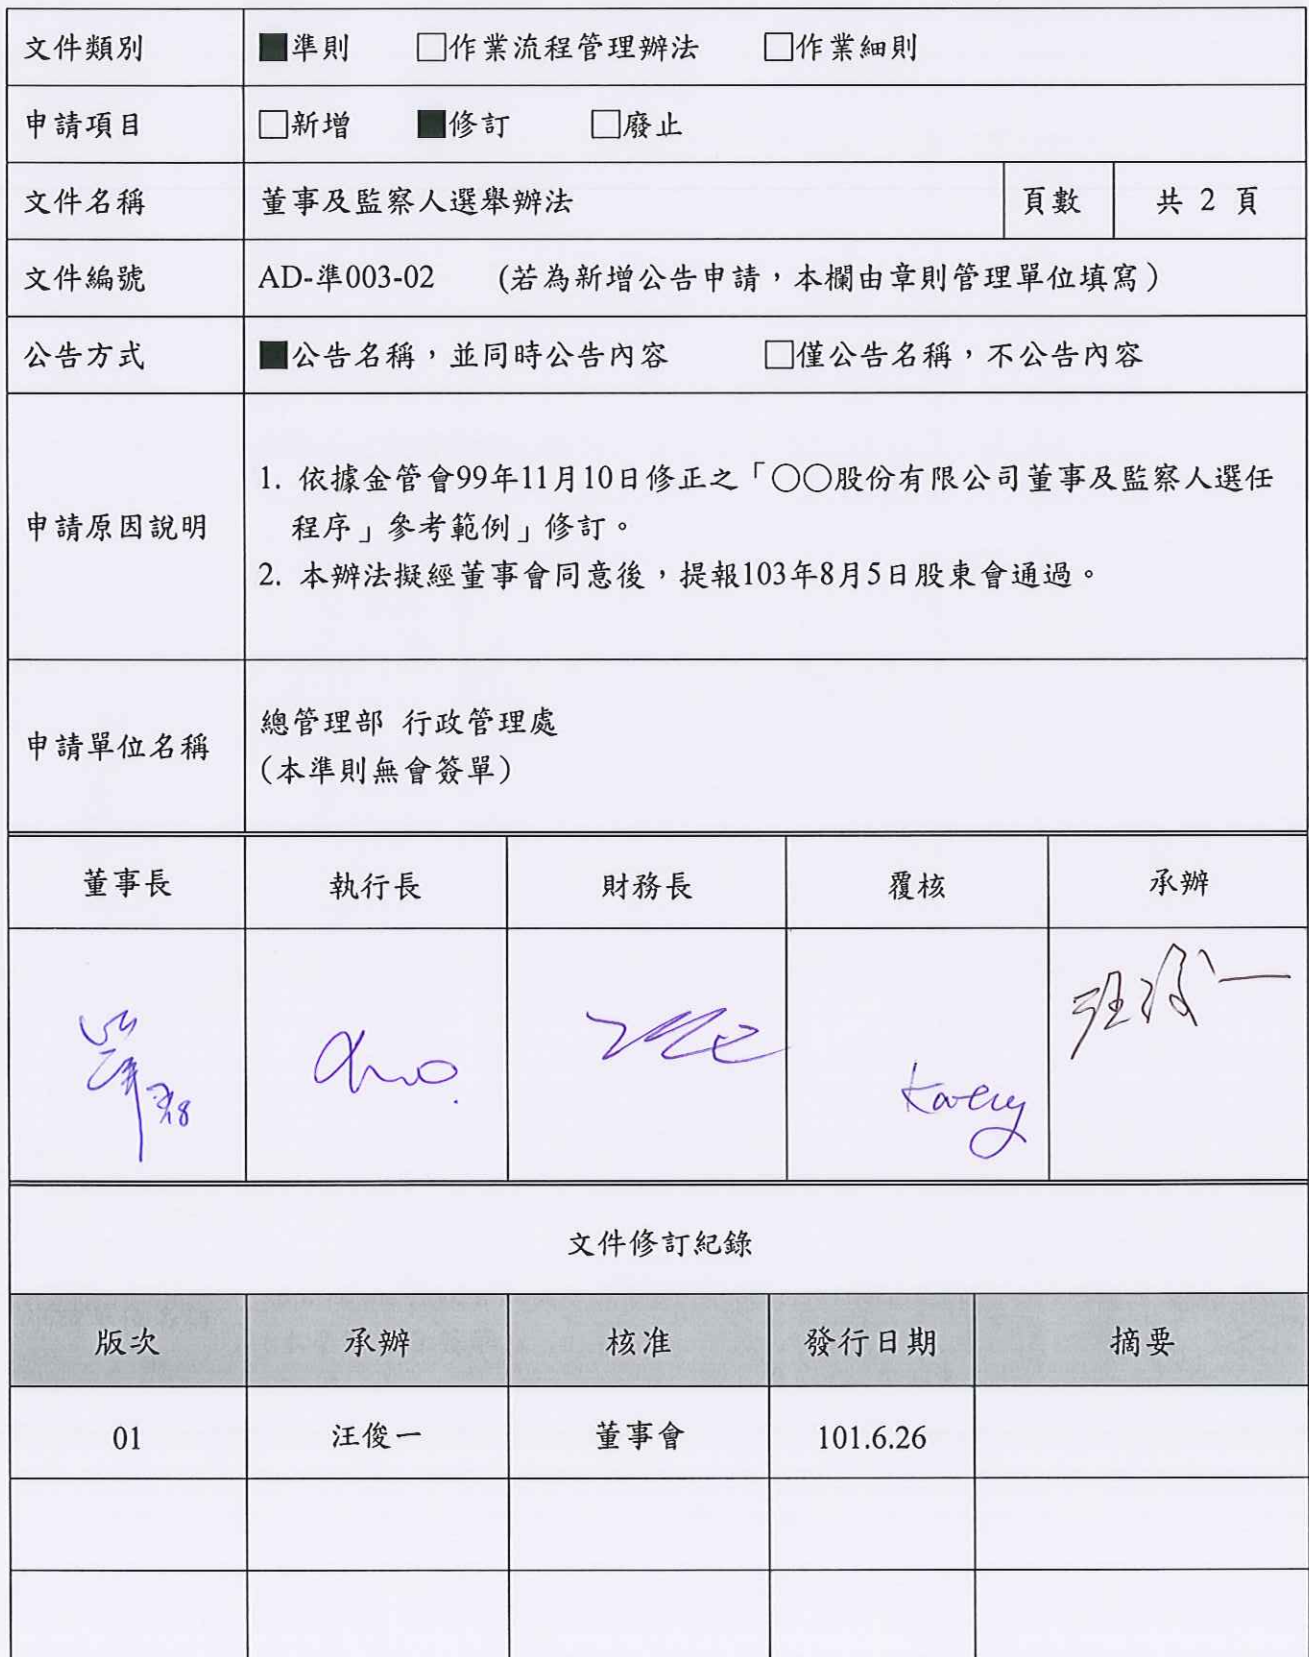 文件類別 ■準則 □作業流程管理辦法 □作業細則
申請項目 □新增 ■修訂 □廢止
文件名稱 董事及監察人選舉辦法 頁數 共 2 頁
文件編號 AD-準003-02 (若為新增公告申請，本欄由章則管理單位填寫)
公告方式 ■公告名稱，並同時公告內容 □僅公告名稱，不公告內容
申請原因說明
1. 依據金管會99年11月10日修正之「○○股份有限公司董事及監察人選任
程序」參考範例」修訂。
2. 本辦法擬經董事會同意後，提報103年8月5日股東會通過。
申請單位名稱
總管理部 行政管理處
(本準則無會簽單)
董事長 執行長 財務長 覆核 承辦
文件修訂紀錄
版次 承辦 核准 發行日期 摘要
01 汪俊一 董事會 101.6.26